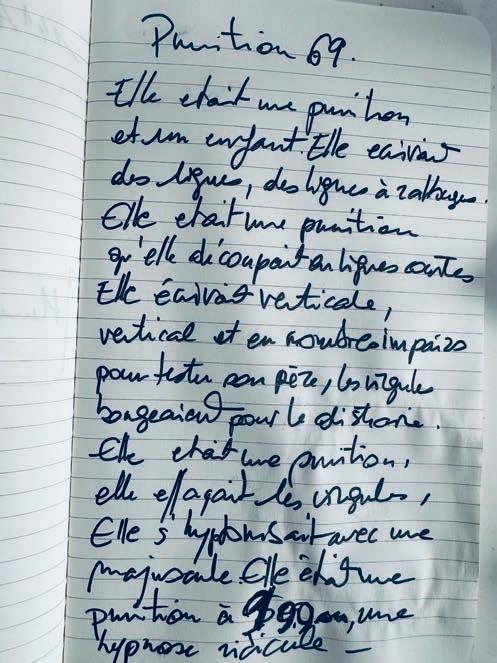 Punition 69.
Elle etait une punition
et un enfant. Elle ecrivait
des lignes, des lignes à rallonges.
Elle etait une punition
qu'elle découpait en lignes courtes
Elle écrivait verticale,
vertical et en nombres impairs
pour tester son père, les virgules
bougeaient pour le distraire.
Elle etait une punition,
elle effaçait les virgules,
Elle s'hypnotisait avec une
majuscule. Elle était une
punition à, une
hypnose ridicule –